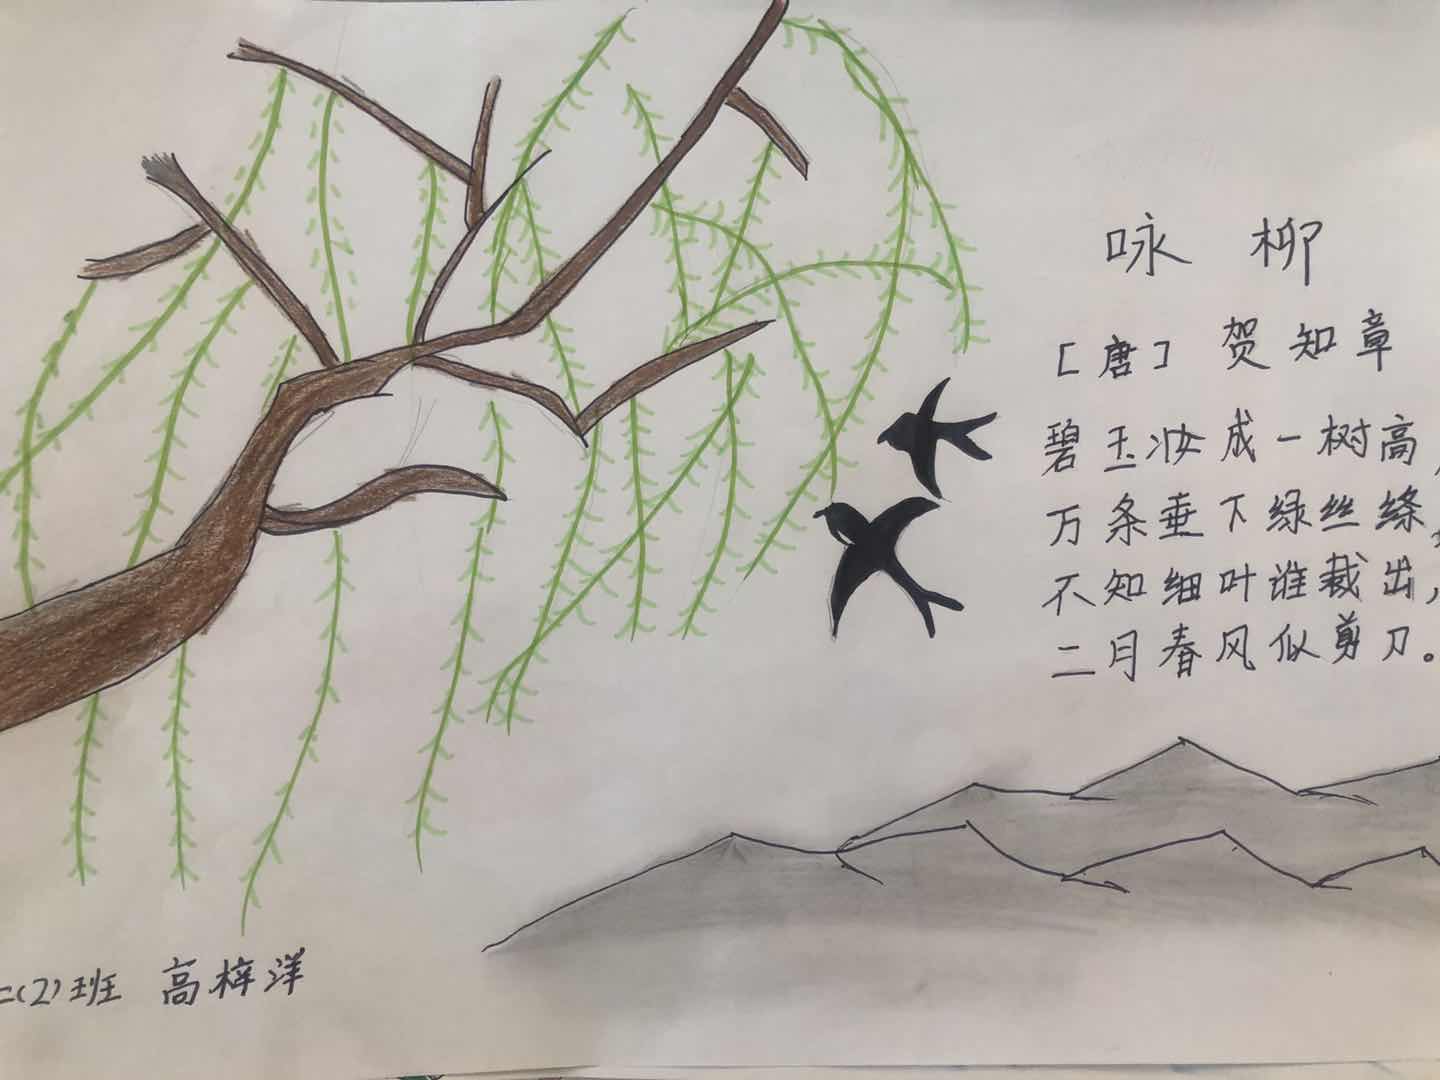 咏 柳
[唐] 贺知章
碧玉妆成一树高，
万条垂下绿丝绦，
不知细叶谁裁出，
二月春风似剪刀。
二(2)班 高梓洋